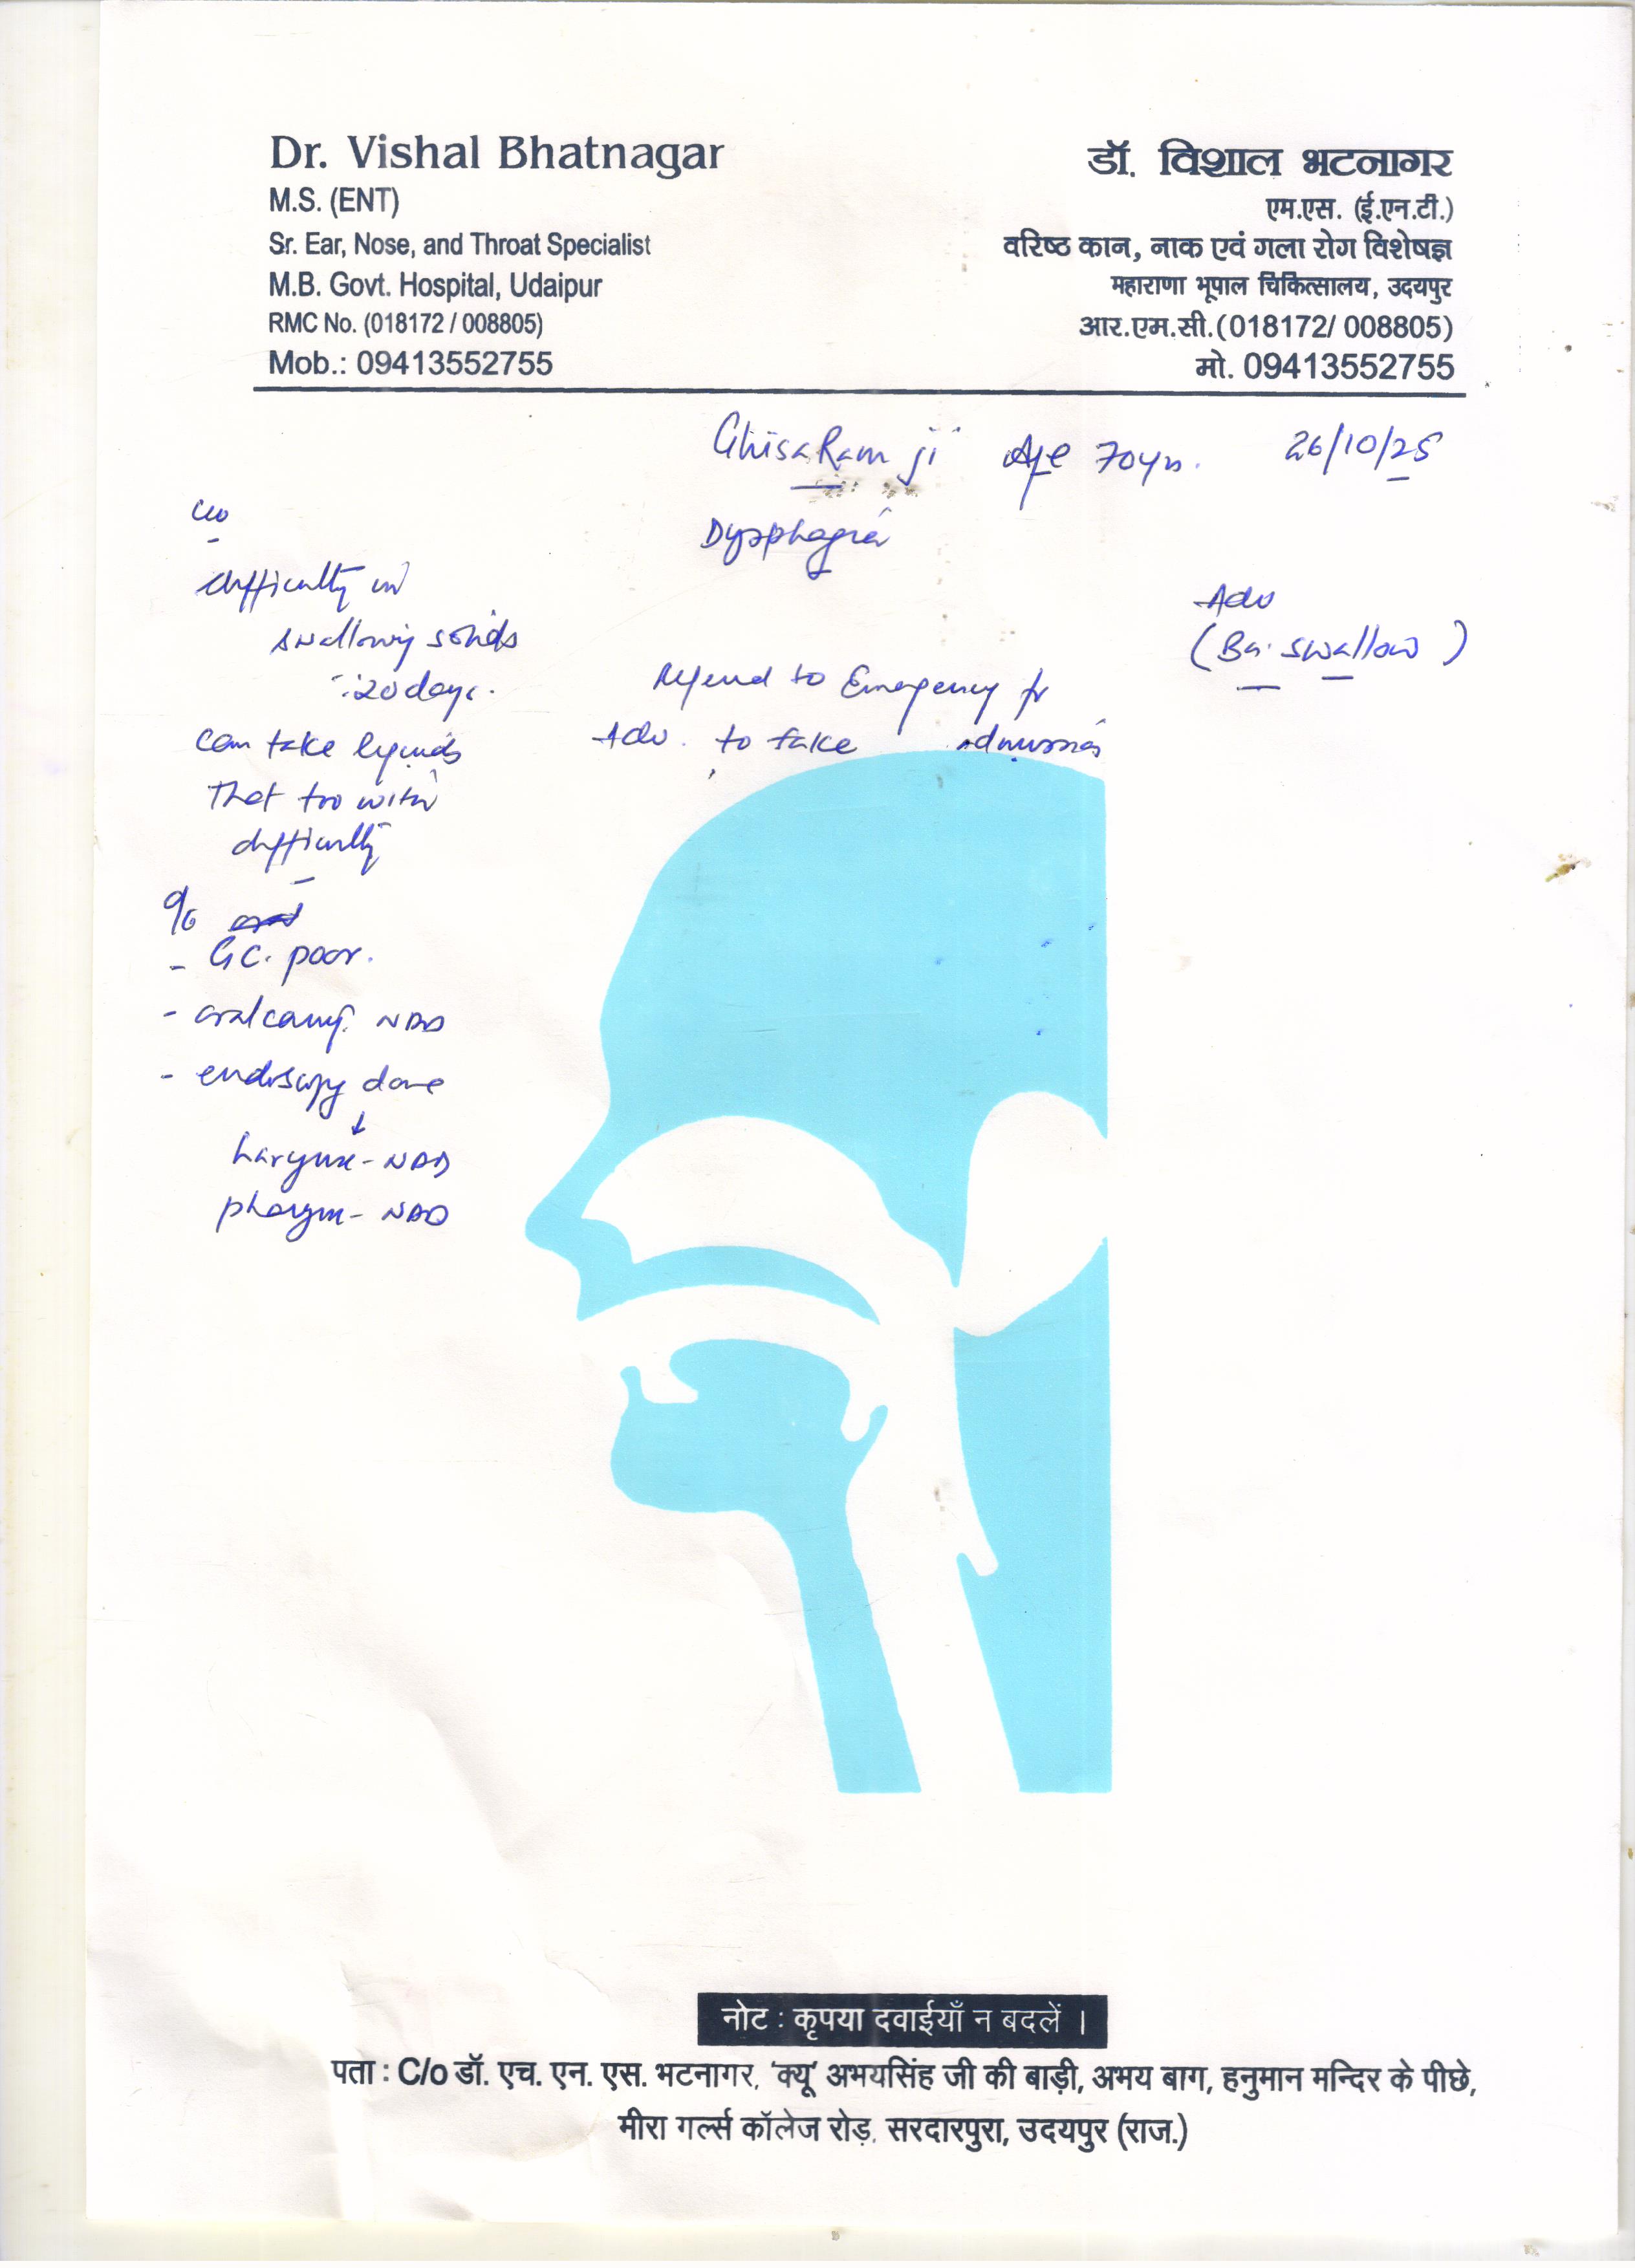 Dr. Vishal Bhatnagar
M.S. (ENT)
Sr. Ear, Nose, and Throat Specialist
M.B. Govt. Hospital, Udaipur
RMC No. (018172 / 008805)
Mob.: 09413552755
डॉ. विशाल भटनागर
एम.एस. (ई.एन.टी.)
वरिष्ठ कान, नाक एवं गला रोग विशेषज्ञ
महाराणा भूपाल चिकित्सालय, उदयपुर
आर.एम.सी.(018172/ 008805)
मो. 09413552755
GhisaRam ji Age 70yrs. 26/10/25
Dysphagia
c/o
difficulty in
swallowing solids
20 days.
can take liquids
that too with
difficulty
Adv
(Ba. swallow)
Referred to Emergency for
Adv. to take admission
O/E
- GC. poor.
- oral cavity. NAD
- endoscopy done
↓
Larynx - NAD
pharynx - NAD
नोट : कृपया दवाईयाँ न बदलें ।
पता : C/o डॉ. एच. एन. एस. भटनागर, 'क्यू' अभयसिंह जी की बाड़ी, अभय बाग, हनुमान मन्दिर के पीछे,
मीरा गर्ल्स कॉलेज रोड़, सरदारपुरा, उदयपुर (राज.)